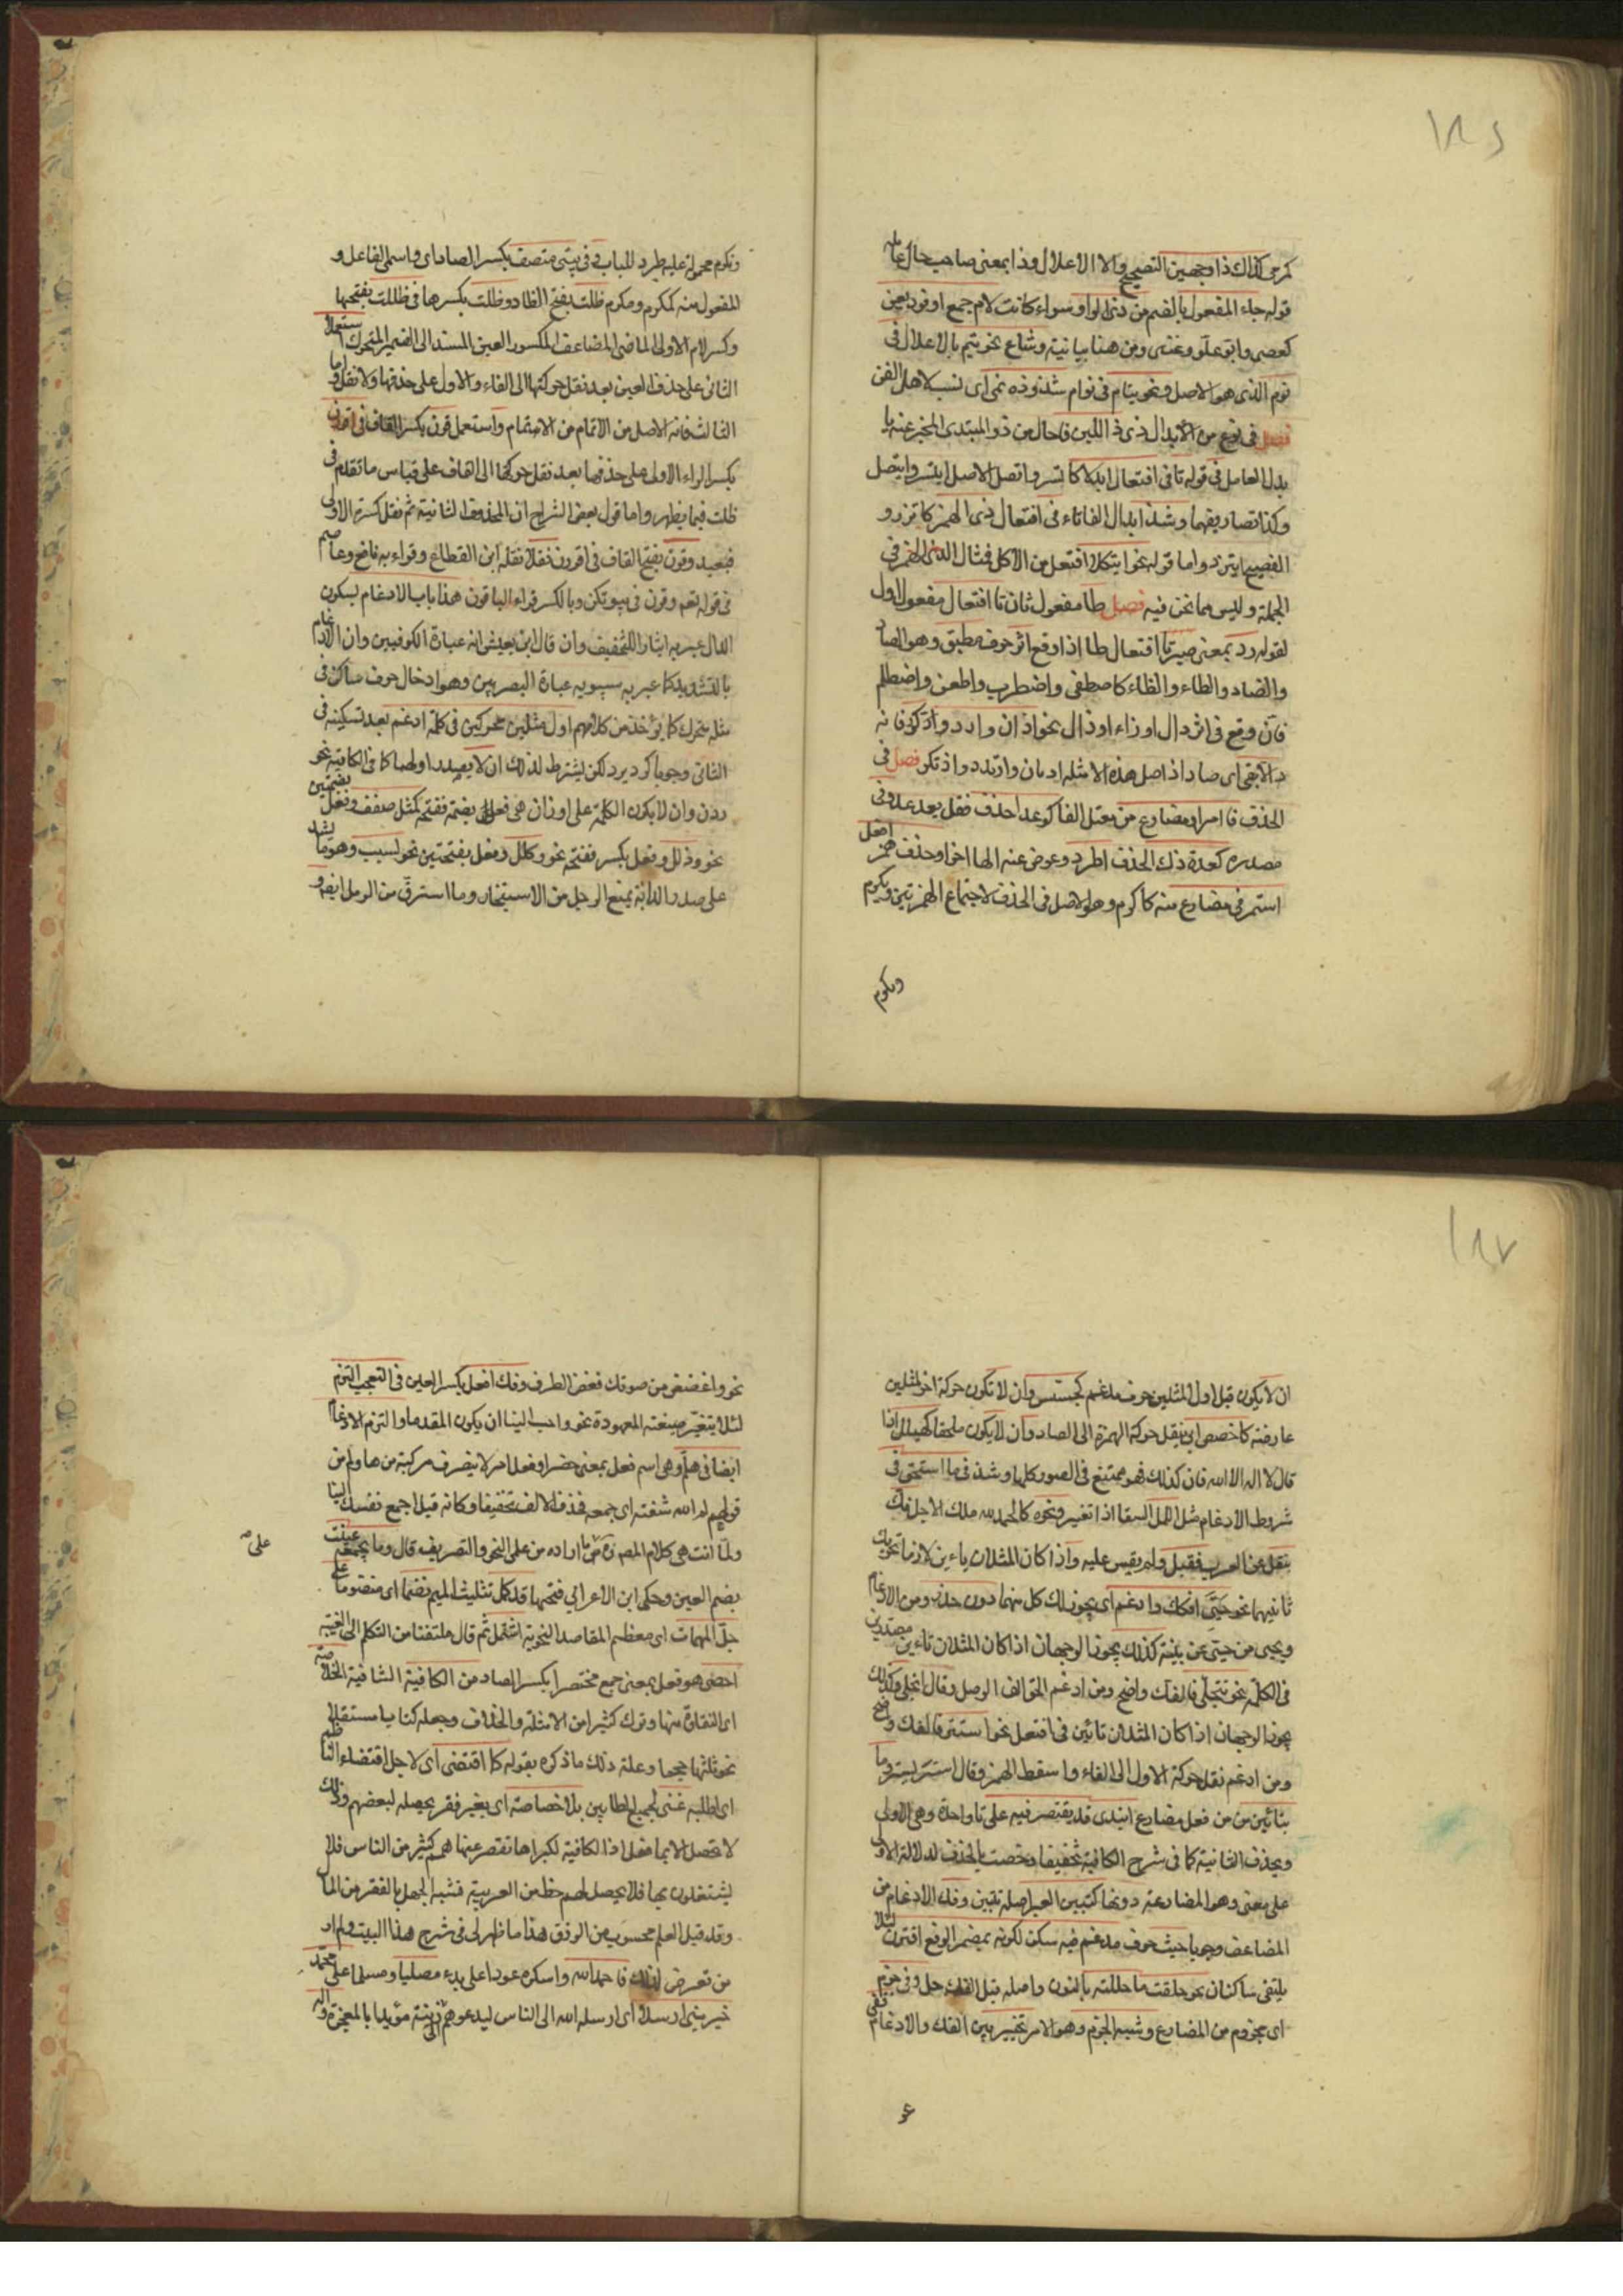 ١٨٦
كمرمى كذلك ذا وجهين التصحيح والا الاعلال وذا بمعنى صاحب حال عامله
قوله جاء المفعول بالضم من ذى الواو سواء كانت لام جمع او فرد يعن
كعصى وابو علو وعتى ومن هنا بيانية وشاع نحو نيم بالاعلال فى
نوم الذى هو الاصل ونحو نيام فى نوام شذوذه نمى اى نسب لاهل الفن
فصل فى نوع من الابدال ذى ذ اللين فا حال من ذو المبتدى المخبر عنه با
بدل العامل فى قوله تا فى افتعال ابدلا كاتسر واتصل الاصل ايتسر وايتصل
وكذا تصاريفهما وشذ ابدال الفا تاء فى افتعال ذى الهمز كاتزر و
الفصيح ايتزر واما قوله نحو ايتكلا افتعل من الاكل فمثال الذى الهمز فى
الجملة وليس مما نحن فيه فصل طا مفعول ثان تا افتعال مفعول اول
لقوله رد بمعنى صير تا افتعال طا اذا وقع اثر حرف مطبق وهو الصاد
والضاد والطاء والظاء كاصطفى واضطرب واطعن واضطلم
فان وقع فى اثر دال او زاء او ذال نحو اذان وازدد واذكر فانه
دالا بقى اى صار اذ اصل هذه الامثله ادتان وازتدد واذتكر فصل فى
الحذف فا امر او مضارع من معتل الفا كوعد احذف فقل يعد عد وفى
مصدره كعدة ذلك الحذف اطرد وعوض عنه الها اخرا وحذف همز افعل
استمر فى مضارع منه كاكرم وهو الاصل فى الحذف لاجتماع الهمزتين ويكرم
وتكرم
وتكرم محمولة عليه طردا للباب وفى بنيتى متصف بكسر الصاد اى واسمى الفاعل و
المفعول منه كمكرم ومكرم ظلت بفتح الظاء وظلت بكسرها فى ظللت بفتحها
وكسر لام الاولى الماضى المضاعف المكسور العين المسند الى الضمير المتحرك استعملا
الثانى على حذف العين بعد نقل حركتها الى الفاء والاول على حذفها ولا نقل واما
الثالث فانه الاصل من الاتمام من الاستمام واستعمل قرن بكسر القاف فى اقررن
بكسر الراء الاولى على حذفها بعد نقل حركتها الى القاف على قياس ما تقدم فى
ظلت فيما يظهر واما قول بعض الشراح ان المحذوف الثانية ثم نقل كسرة الاولى
فبعيد وقرن بفتح القاف فى اقررن نقلا نقله ابن القطاع وقراء به نافع وعاصم
فى قوله تعم وقرن فى بيوتكن وبالكسر قراء الباقون هذا باب الادغام بسكون
الدال عبر به ايثارا للتخفيف وان قال ابن يعيش انه عبارة الكوفيين وان الادغام
بالتشديد كما عبر به سيبويه عبارة البصريين وهو ادخال حرف ساكن فى
مثله متحرك كما يؤخذ من كلامهم اول مثلين محركين فى كلمة ادغم بعد تسكينه فى
الثانى وجوبا كرد يرد لكن يشترط لذلك ان لا يصدر اولهما كما فى الكافية نحو
ددن وان لا يكون الكلمة على اوزان هى فعل بضمة ففتحة كمثل صفف وفعل بضمتين
نحو ذلل وفعل بكسر ففتحة نحو كلل وفعل بفتحتين نحو لبب وهو ما يشد
على صدر الدابة يمنع الرحل من الاستيخار وما استرق من الرمل ايضه و
١٨٧
ان لا يكون قبل اول المثلين حرف مدغم كجسس وان لا تكون حركة اخر المثلين
عارضة كاخصص ابى بنقل حركة الهمزة الى الصاد وان لا يكون ملحقا كهيلل اذا
قال لا اله الا الله فان كذلك فهو ممتنع فى الصور كلها وشذ فى ما استحق فى
شروط الادغام مثل الل السقا اذا تغير ونحوه كالحمد لله ملك الاجلل فك
بنقل عن العرب فقبل ولم يقس عليه واذا كان المثلان ياءين لازما تحريك
ثانيهما نحو حيى افكك وادغم اى يجوز لك كل منهما دون حذر ومن الادغام
ويحيى من حى عن بينة كذلك يجوز الوجهان اذا كان المثلان تاءين مصدرين
فى الكلمة نحو تتجلى فالفك واضح ومن ادغم الحق الف الوصل وقال اتجلى وكذلك
يجوز الوجهان اذا كان المثلان تائين فى افتعل نحو استتر فالفك واضح
ومن ادغم نقل حركة الاول الى الفاء واسقط الهمز وقال ستر يستر وما
بتائين من من فعل مضارع ابتدى قد يقتصر فيه على تا واحدة وهى الاولى
ويحذف الثانية كما فى شرح الكافية تخفيفا وخصت بالحذف لدلالة الاولى
على معنى وهو المضارعة دونها كتبين العبر اصله تتبين وفك الادغام من
المضاعف وجوبا حيث حرف مدغم فيه سكن لكونه بمضمر الرفع اقترن لئلا
يلتقى ساكنان نحو حللت ما حللته بالنون واصله قبل الفك حل وفى جزم
اى مجزوم من المضارع وشبه الجزم وهو الامر تخيير بين الفك والادغام قفى
نحو
نحو واغضض من صوتك فغض الطرف وفك افعل بكسر العين فى التعجب التزم
لئلا يتغير صيغته المعهودة نحو واحبب الينا ان يكون المقدما والتزم الادغام
ايضا فى هلم وهى اسم فعل بمعنى حضر او فعل امر لا يتصرف مركبة من ها ولم من
قولهم لم الله شعثه اى جمعه فحذف الالف تخفيفا وكانه قيل اجمع نفسك الينا
ولما انتهى كلام المصـ ره على ما اراده من على النحو والتصريف قال وما بجمعه عنيت
على صح
بضم العين وحكى ابن الاعرابى فتحها قد كمل بتثليث الميم نظما اى منظوما على
جل المهمات اى معظم المقاصد النحوية اشتمل ثم قال ملتفتا من التكلم الى الغيبة
احصى هو فعل بمعنى جمع مختصرا بكسر الصاد من الكافية الشافية الخلاصة
اى النقاوة منها وترك كثيرا من الامثلة والخلاف وجعله كتابا مستقلا
نحو ثلثها حجما وعلة ذلك ما ذكره بقوله كما اقتضى اى لاجل اقتضاء الناظم
اى لطلبه غنى لجميع الطالبين بلا خصاصة اى بغير فقر يحصله لبعضهم وذلك
لا يحصل الا بما فعل اذ الكافية لكبرها تقصر عنها همم كثير من الناس فلا
يشتغلون بها فلا يحصل لهم حظ من العربية فشبه الجهل بالفقر من المال
وقد قيل العلم محسوب من الرزق هذا ما ظهر لى فى شرح هذا البيت ولم ار
من تعرض لذلك فاحمد الله واشكره عودا على بدء مصليا ومسلما على محمد
خير نبى ارسلا اى ارسله الله الى الناس ليدعوهم الى دينه مؤيدا بالمعجزة واله